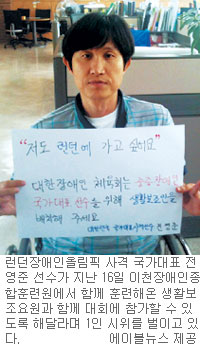 "저도 런던에 가고 싶어요"
대한장애인 체육회는 중증 장애인
국가대표 선수를 위해 생활보조인을
배치해 주세요
런던장애인올림픽 사격 국가대표 전
영준 선수가 지난 16일 이천장애인종
합훈련원에서 함께 훈련해온 생활보
조요원과 함께 대회에 참가할 수 있
도록 해달라며 1인 시위를 벌이고 있
다. 에이블뉴스 제공